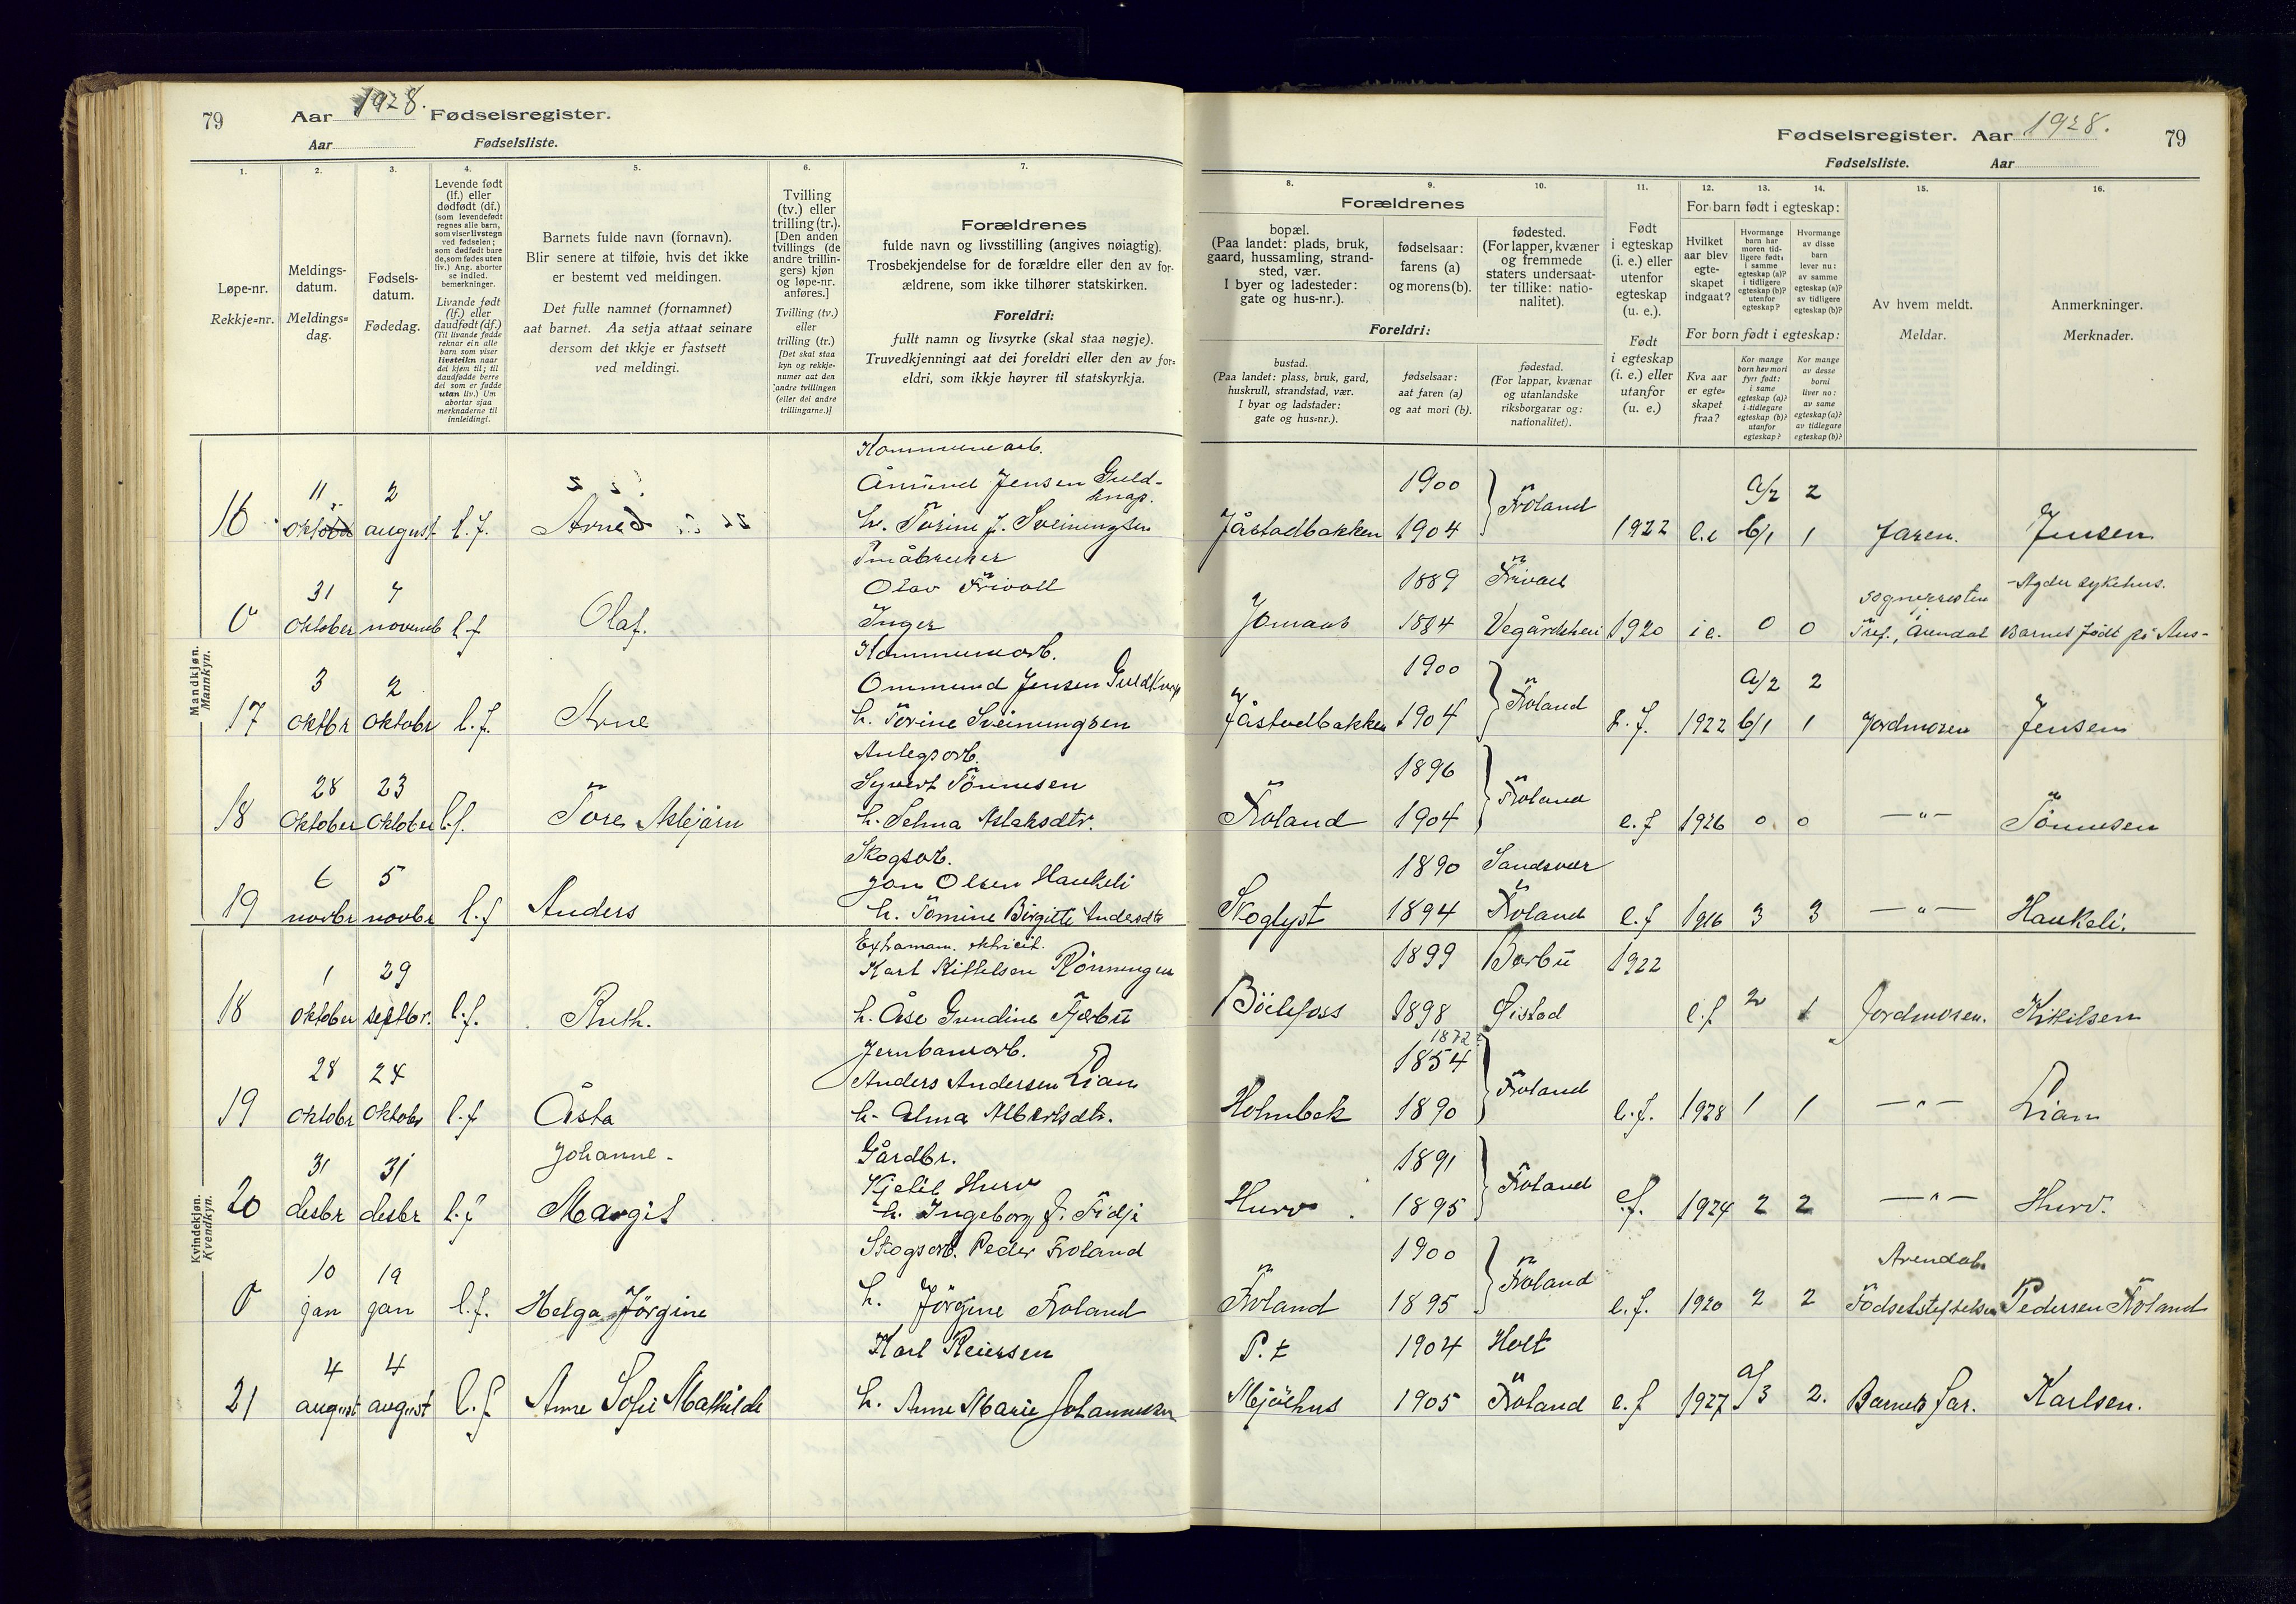 79 Aar 1928. Fødselsregister.
Aar Fødselsliste.
1. 2. 3. 4. 5. 6. 7.
Løpe-nr.
Rekkje=nr.
Meldings-
datum.
Meldings=
dag.
Fødsels-
datum.
Fødedag.
Levende født
(lf.) eller
dødfødt (df.)
(som levendefødt
regnes alle barn,
som viser livstegn
ved fødselen;
som dødfødt bare
de, som fødes uten
liv.) Ang. aborter
se indled.
bemerkninger.
Livande født
(lf.) eller
daudfødt (df.)
(Til livande fødde
reknar ein alle
born som viser
livsteikn naar
dei kjem til; til
daudfødde berre
dei som er fødde
utan liv.) Um
abortar sjaa
merknaderne til
innleidingi.
Barnets fulde navn (fornavn).
Blir senere at tilføie, hvis det ikke
er bestemt ved meldingen.
Det fulle namnet (fornamnet)
aat barnet. Aa setja attaat seinare
dersom det ikkje er fastsett
ved meldingi.
Tvilling
(tv.) eller
trilling (tr.).
[Den anden
tvillings (de
andre trillin-
gers) kjøn
og løpe-nr.
anføres.]
Tvilling (tv.)
eller
trilling (tr.)
[Det skal staa
kyn og rekkje-
numer aat den
andre tvillingen
(eller dei andre
trillingarne.)]
Forældrenes
fulde navn og livsstilling (angives nøiagtig).
Trosbekjendelse for de forældre eller den av for-
ældrene, som ikke tilhører statskirken.
Foreldri:
fullt namn og livsyrke (skal staa nøgje).
Truvedkjenningi aat dei foreldri eller den av for=
eldri, som ikkje høyrer til statskyrkja.
Fødselsregister. Aar 1928. 79
Fødselsliste. Aar
8. 9. 10. 11. 12. 13. 14. 15. 16.
Forældrenes
bopæl.
(Paa landet: plads, bruk,
gaard, hussamling, strand-
sted, vær.
I byer og ladesteder:
gate og hus-nr.).
Foreldri:
bustad.
(Paa landet: plass, bruk, gard,
huskrull, strandstad, vær.
I byar og ladstader:
gate og hus=nr.).
fødselsaar:
farens (a)
og morens (b).
fødselsaar:
aat faren (a)
og aat mori (b).
fødested.
(For lapper, kvæner
og fremmede
staters undersaat-
ter tillike: natio-
nalitet).
fødestad.
(For lappar, kvænar
og utanlandske
riksborgarar og:
nationalitet).
Født
i egteskap
(i. e.) eller
utenfor
egteskap
(u. e.).
Født
i egteskap
(i. e.) eller
utanfor
(u. e.)
For barn født i egteskap:
Hvilket
aar blev
egte-
skapet
indgaat?
Hvormange
barn har
moren tid-
ligere født:
i samme
egteskap (a)?
i tidligere
egteskap (b)?
utenfor
egteskap?
Hvormange
av disse
barn
lever nu:
av samme
egteskap (a)?
av tidligere
egteskap (b)?
For born født i egteskap:
Kva aar
er egte=
skapet
fraa?
Kor mange
born hev mori
fyrr født:
i same
egteskap (a)?
i tidlegare
egteskap (b)?
utanfor
egteskap?
Kor mange
av desse
borni
liver no:
av same
egteskap (a)?
av tidlegare
egteskap (b)?
Av hvem meldt.
Meldar.
Anmerkninger.
Merknader.
Mandkjøn.
Mannkyn.
Kommunearb.
11 2 Åmund Jensen Guld-
knap. 1900 Froland a/2 2
16 august l.f. h. Torine J. Sveinungsen Jåstadbakken 1904 1922 b/1 1 Jensen
Småbruker
31 Olav Trivoll 1889
0 oktober novemb l.f Olaf. Inger 1920 i e. 0 0 Arendal Barnet født på Aus-
-Agder sykehus.
Kommunearb.
3 2 Ommund Jensen Guldknap 1900 Froland a/2 2
17 oktbr oktobr l.f. Arne h. Torine Sveinungsen Jåstadbakken 1904 1922 b/1 1 Jordmoren Jensen
Anlegsarb.
28 23 Syvert Tönnesen 1896 Froland
18 oktober oktober l.f. Tore Asbjörn h. Selma Aslaksdtr. Froland 1904 e.f 1926 0 0 —"— Tönnesen
Skogsarb.
6 5 Jon Olsen Haukeli 1890 Sandsvær
19 novbr novbr l.f Anders h. Tomine Birgitte Andersdtr Skoglyst 1894 Froland e.f 1916 3 3 —"— Haukeli.
Kvindekjøn.
Kvendkyn.
1 29 Karl Kittelsen Rönningen 1899 Barbu 1922
18 oktober septbr. l.f. Ruth. h. Åse Gundine Böilefoss 1898 Øistad e.f 2 1 Jordmoren. Kittilsen
Jernbanearb. 1872
28 24 Anders Andersen Lian 1854 Froland
19 oktobr oktobr l.f Åsta h. Alma Albertsdtr. Holmbek 1890 e.f. 1928 1 1 —"— Lian
Johanne- Gårdbr.
31 31 Kjetil Hurv 1891 Froland
20 desbr desbr l.f Margit h. Ingeborg J. Fidje Hurv 1895 e.f. 1924 2 2 —"— Hurv.
Skogsarb. Peder Froland 1900 Froland Arendals
10 19
0 jan jan l.f. Helga Jörgine h. Jörgine Froland Froland 1895 e.f. 1920 2 2 Födselstiftelse Pedersen Froland
Karl Reiersen P.t 1904 Holt
4 4
21 august august l.f Anne Sofie Mathilde h. Anne Marie Johannesen Mjölhus 1905 Froland e.f 1927 a/3 2. Barnets far. Karlsen.